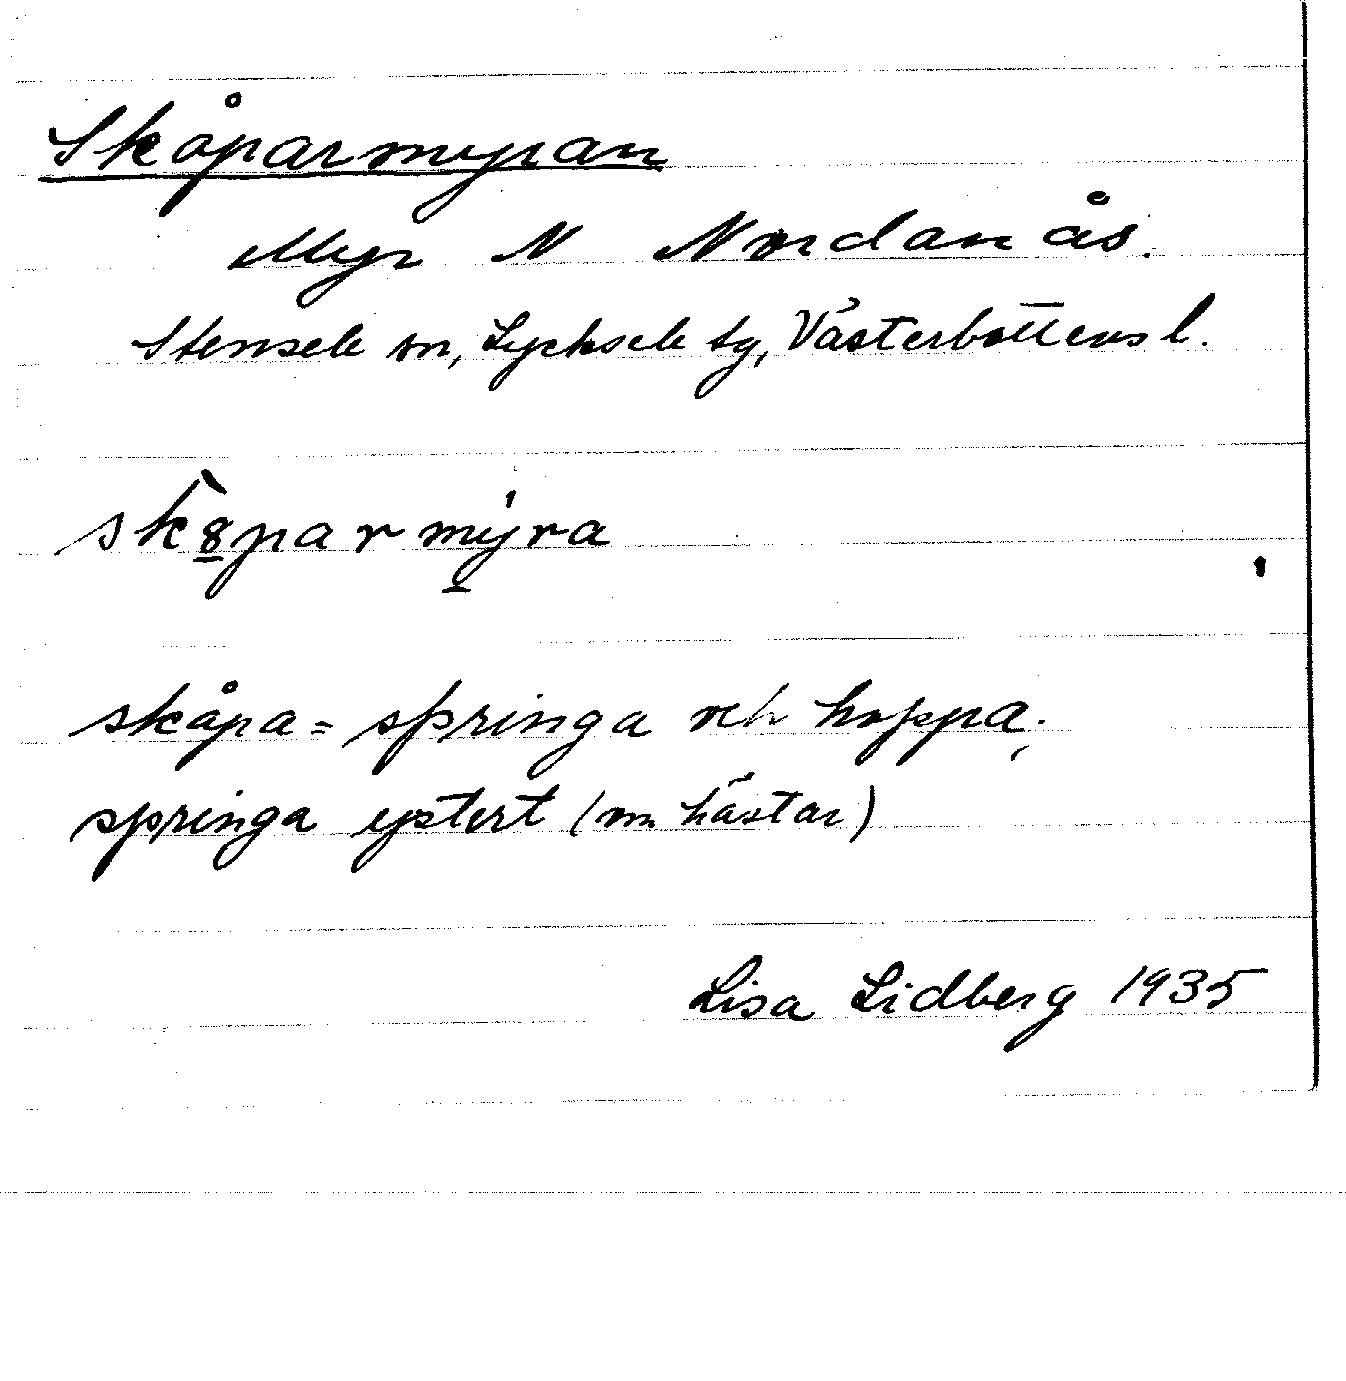 Skåparmyran
Myr N Nordanås.
Stensele sn, Lycksele tg, Västerbottens l.
sk8̲̀parmý̲ra
skåpa = springa och hoppa;
springa ystert (om hästar)
Lisa Lidberg 1935